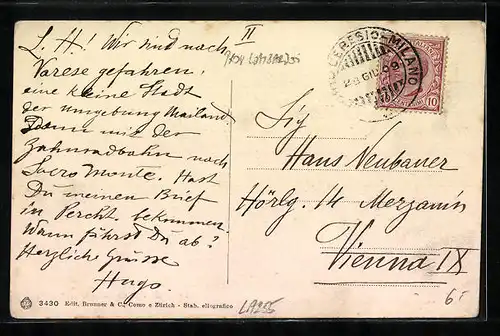 L. H.! Wir sind nach
Varese gefahren,
eine kleine Stadt
der Umgebung Mailand.
Dann mit der
Zahnradbahn nach
Sacro Monte. Hast
Du meinen Brief
in Percht bekommen.
Wann fährst Du ab?
Herzliche Grüsse
Hugo.
II
CERESIO - MILANO
23 GIU 09
10
Sig
Hans Neubauer
Hörlg. 14 Merzamin
Vienna IX
6.-
3430 Edit. Brunner & C., Como e Zürich - Stab. eliografico
LA255